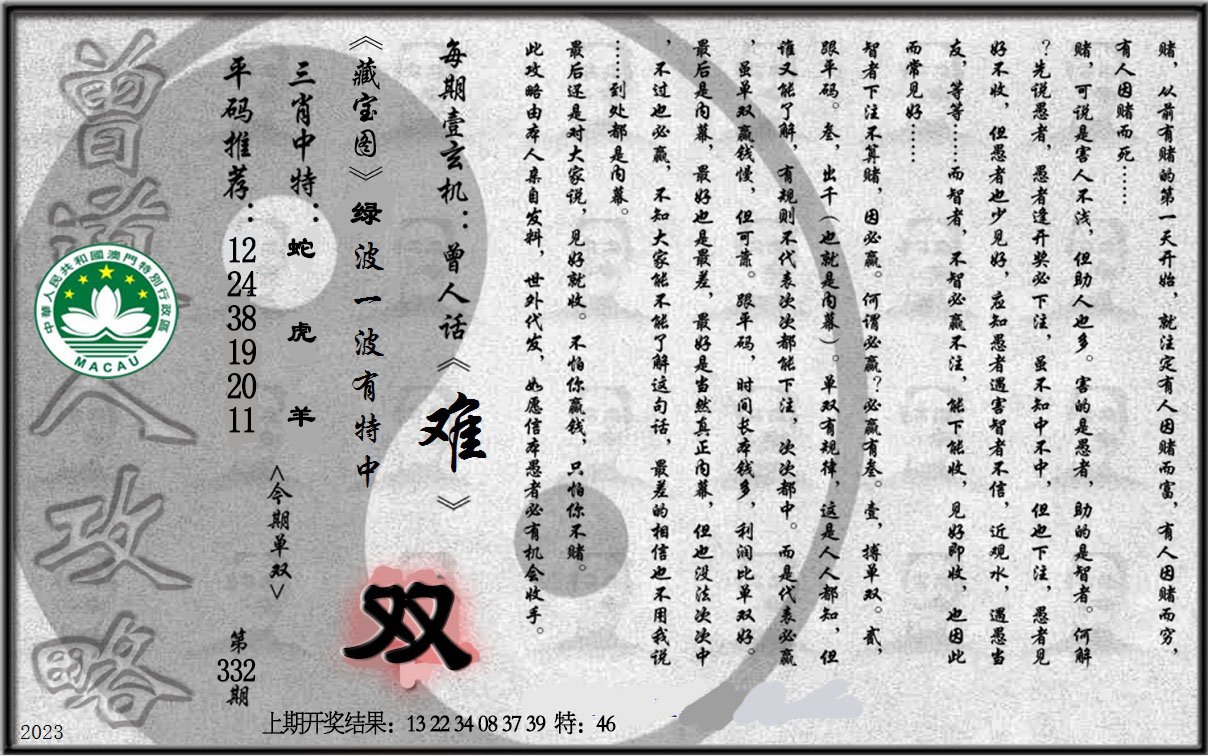 赌，从前有赌的第一天开始，就注定有人因赌而富，有人因赌而穷，
有人因赌而死……
赌，可说是害人不浅，但助人也多。害的是愚者，助的是智者。何解
？先说愚者，愚者逢开奖必下注，虽不知中不中，但也下注，愚者见
好不收，但愚者也少见好，应知愚者遇害智者不信，近观水，遇愚当
友，等等……而智者，不智必赢不注，能下能收，见好即收，也因此
而常见好……
智者下注不算赌，因必赢。何谓必赢？必赢有叁。壹，搏单双。贰，
跟平码。叁，出千（也就是内幕）。单双有规律，这是人人都知，但
谁又能了解，有规则不代表次次都能下注，次次都中。而是代表必赢
，虽单双赢钱慢，但可靠。跟平码，时间长本钱多，利润比单双好。
最后是内幕，最好也是最差，最好是当然真正内幕，但也没法次次中
，不过也必赢，不知大家能不能了解这句话，最差的相信也不用我说
……到处都是内幕。
最后还是对大家说，见好就收。不怕你赢钱，只怕你不赌。
此攻略由本人亲自发料，世外代发，如愿信本愚者必有机会收手。
每期壹玄机：曾人话《难》
《藏宝图》绿波一波有特中
双
三肖中特：蛇 虎 羊
<今期单双>
平码推荐：12 24 38 19 20 11
第332期
曾道人攻略
中華人民共和國澳門特別行政區
MACAU
上期开奖结果：13 22 34 08 37 39 特：46
2023